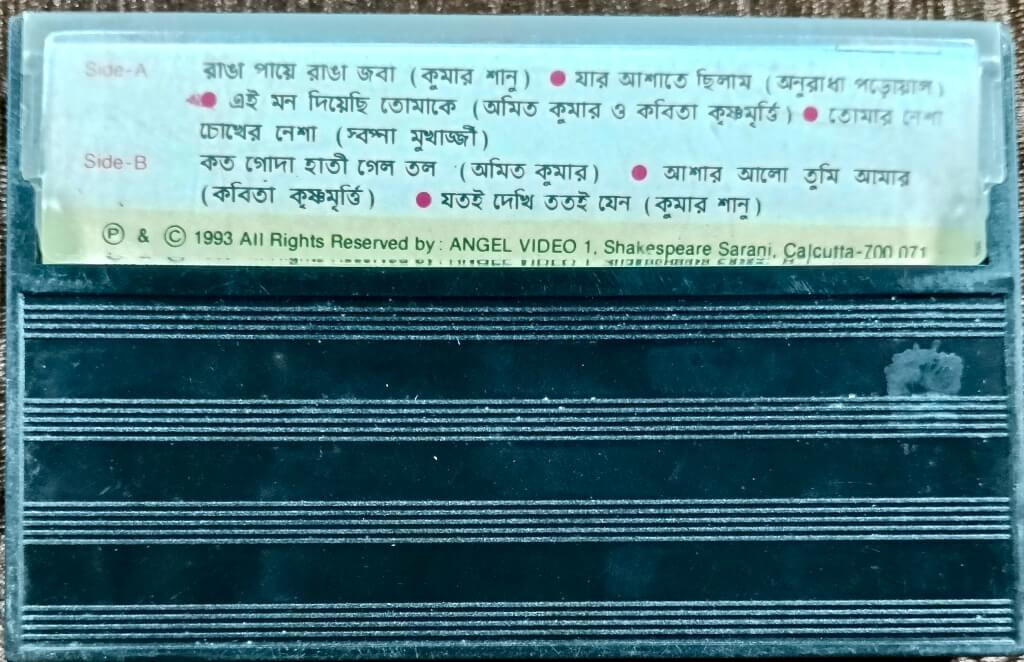 Side-A রাঙা পায়ে রাঙা জবা (কুমার শানু) ● যার আশাতে ছিলাম (অনুরাধা পড়োয়াল)
● এই মন দিয়েছি তোমাকে (অমিত কুমার ও কবিতা কৃষ্ণমূর্ত্তি) ● তোমার নেশা
চোখের নেশা (স্বপ্না মুখার্জ্জী)
Side-B কত গোদা হাতী গেল তল (অমিত কুমার) ● আশার আলো তুমি আমার
(কবিতা কৃষ্ণমূর্ত্তি) ● যতই দেখি ততই যেন (কুমার শানু)
Ⓟ & © 1993 All Rights Reserved by: ANGEL VIDEO 1, Shakespeare Sarani, Calcutta-700 071